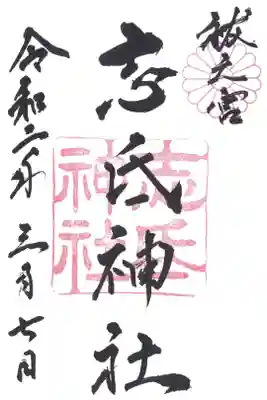 祓大宮
志氐神社
志氐
神社
令和二年三月七日